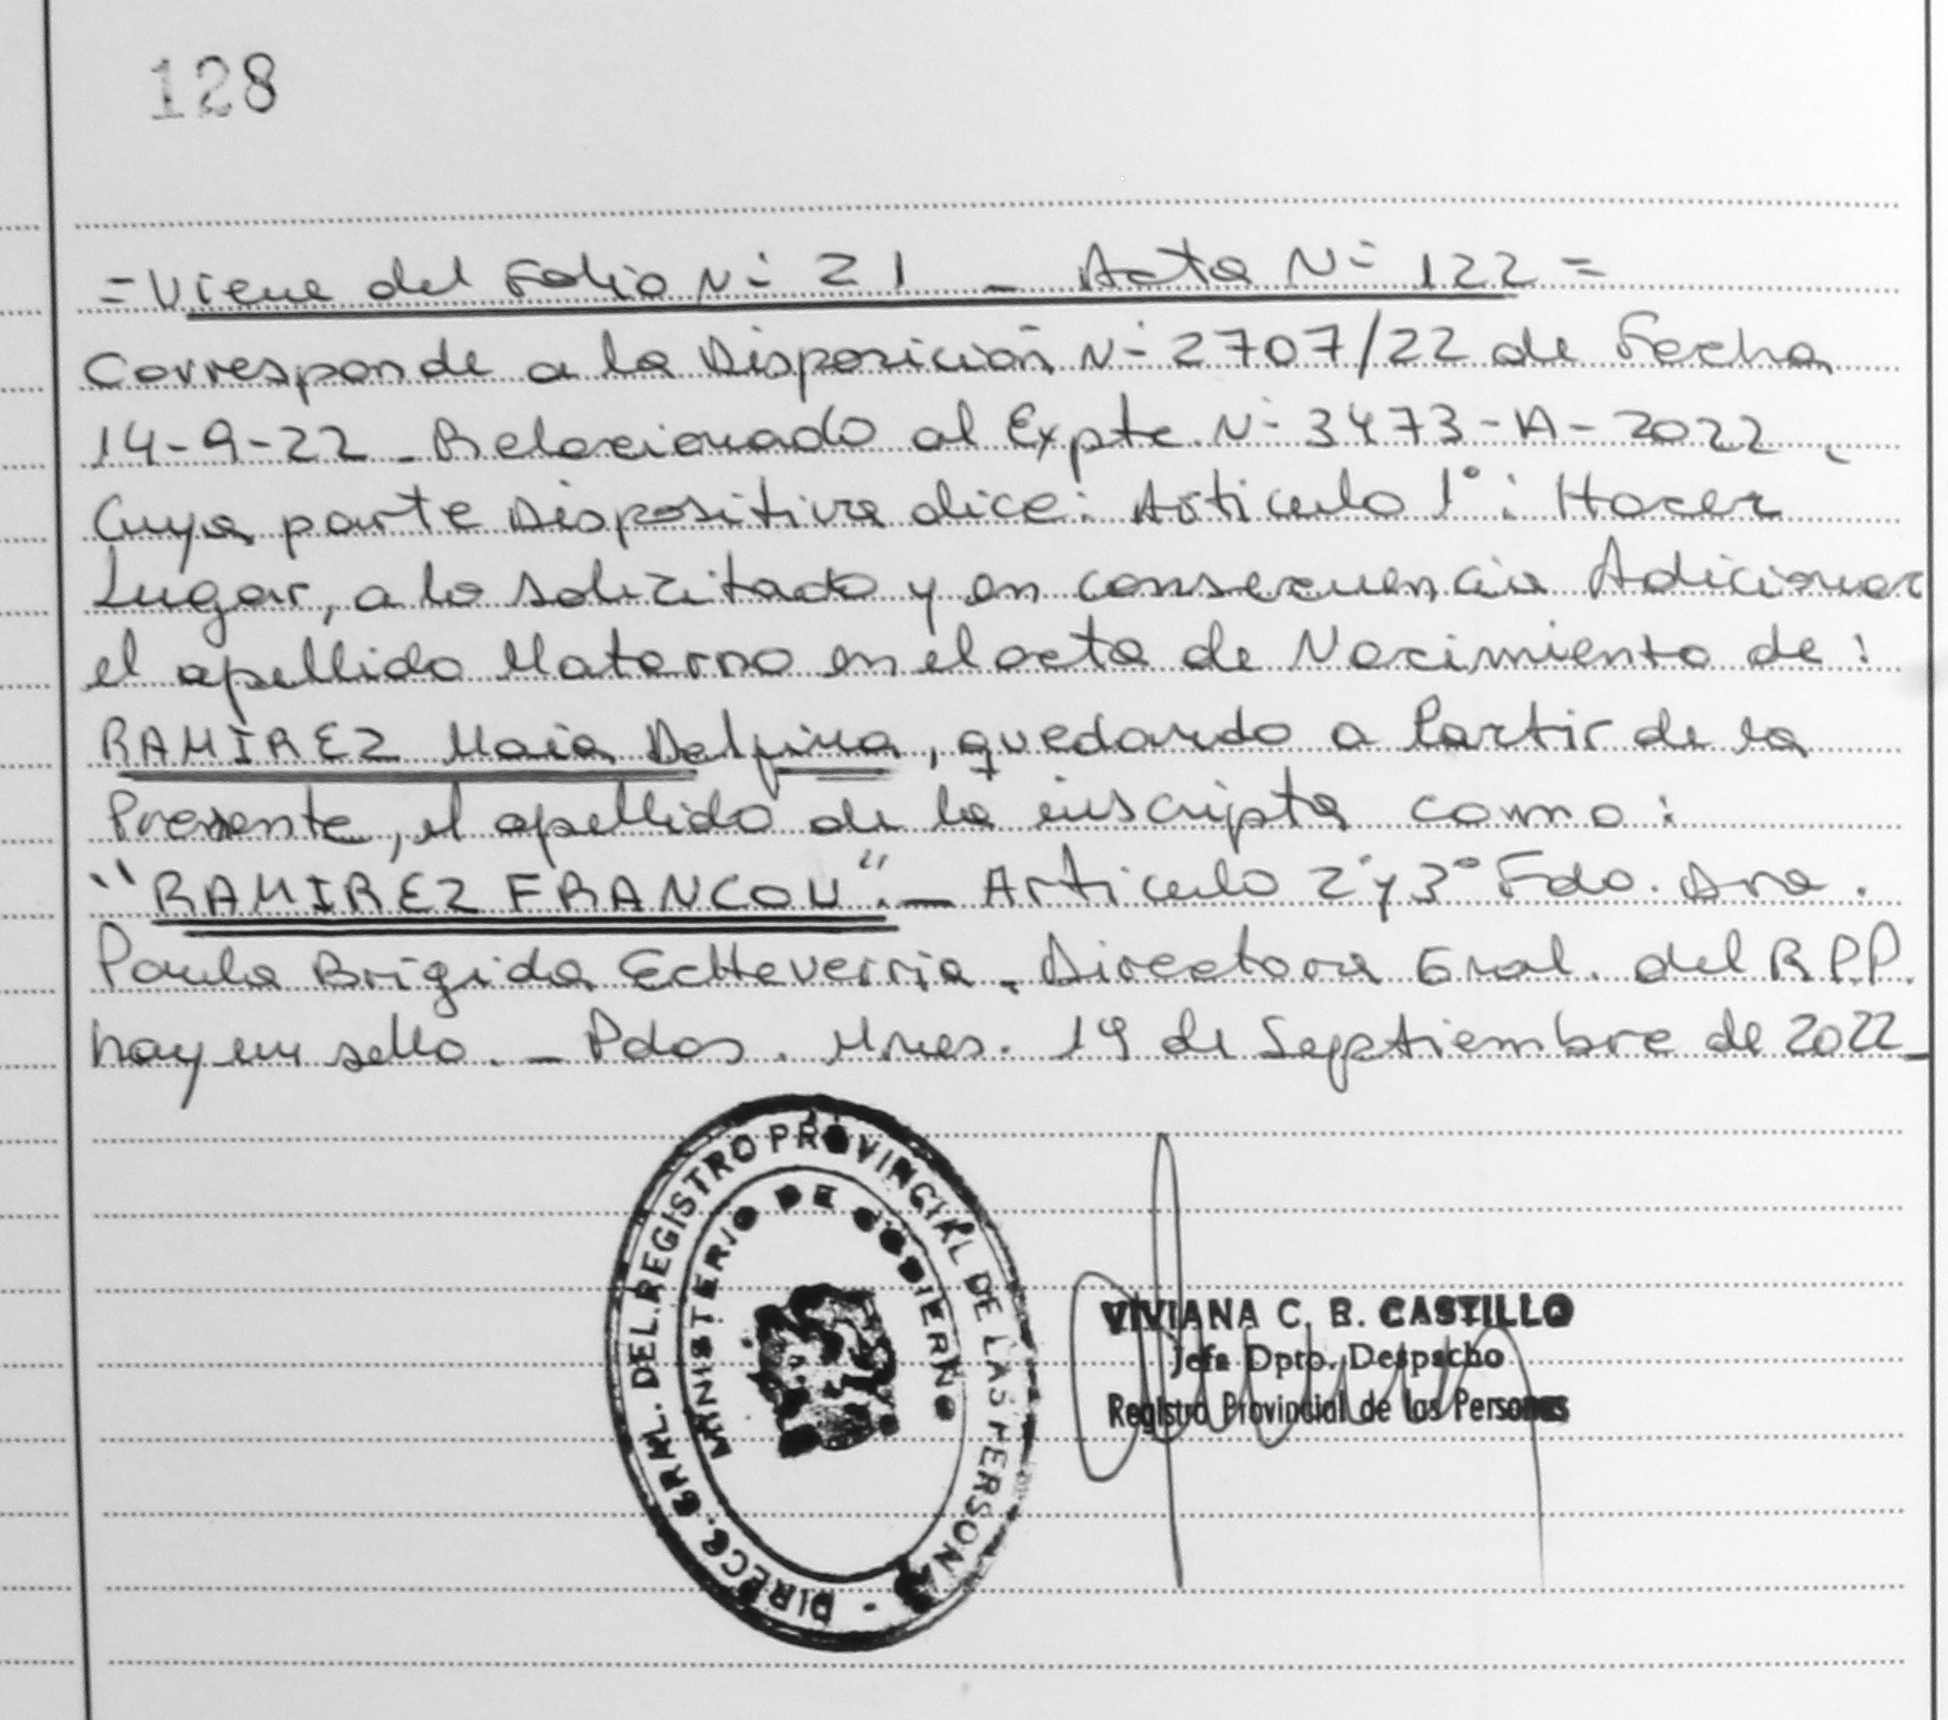 128
=Viene del Folio N° 21 _ Acta N° 122 =
Corresponde a la Disposición N° 2707/22 de Fecha
14-9-22 _ Relacionado al Expte. N° 3473-A-2022,
Cuya parte Dispositiva dice: Articulo 1°: Hacer
Lugar, a lo solicitado y en consecuencia Adicionar
el apellido Materno en el acta de Nacimiento de:
RAMIREZ Maia Delfina, quedando a Partir de la
Presente, el apellido de la inscripta como:
"RAMIREZ FRANCOU".— Articulo 2° y 3° Fdo. Dra.
Paula Brigida Echeverria _ Directora Gral. del R.P.P.
hay un sello. — Pdas. Mnes. 19 de Septiembre de 2022_
DIRECC. GRAL. DEL REGISTRO PROVINCIAL DE LAS PERSONAS -
MINISTERIO DE GOBIERNO
VIVIANA C. B. CASTILLO
Jefa Dpto. Despacho
Registro Provincial de las Personas